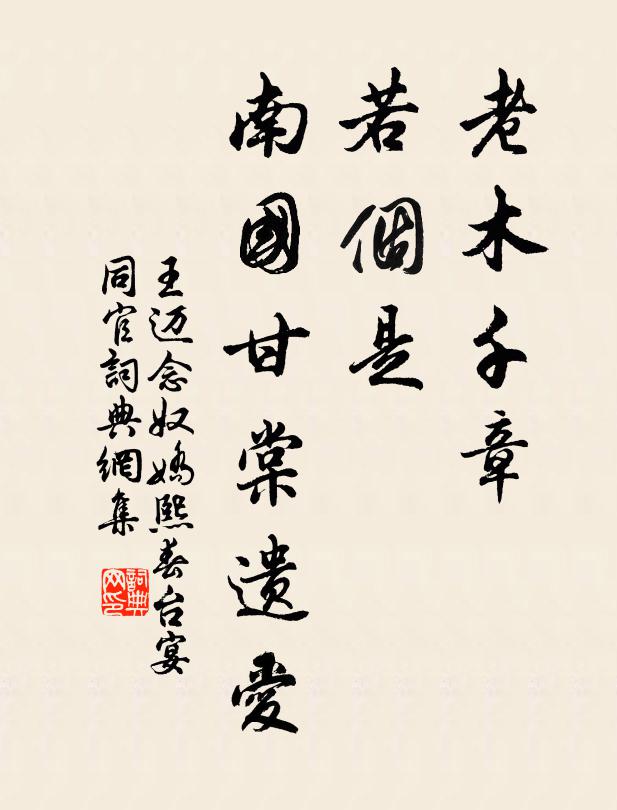 老木千章
若個是
南國甘棠遺愛
王迈念奴嬌熙春台宴
同官詞典網集
詞典
网印